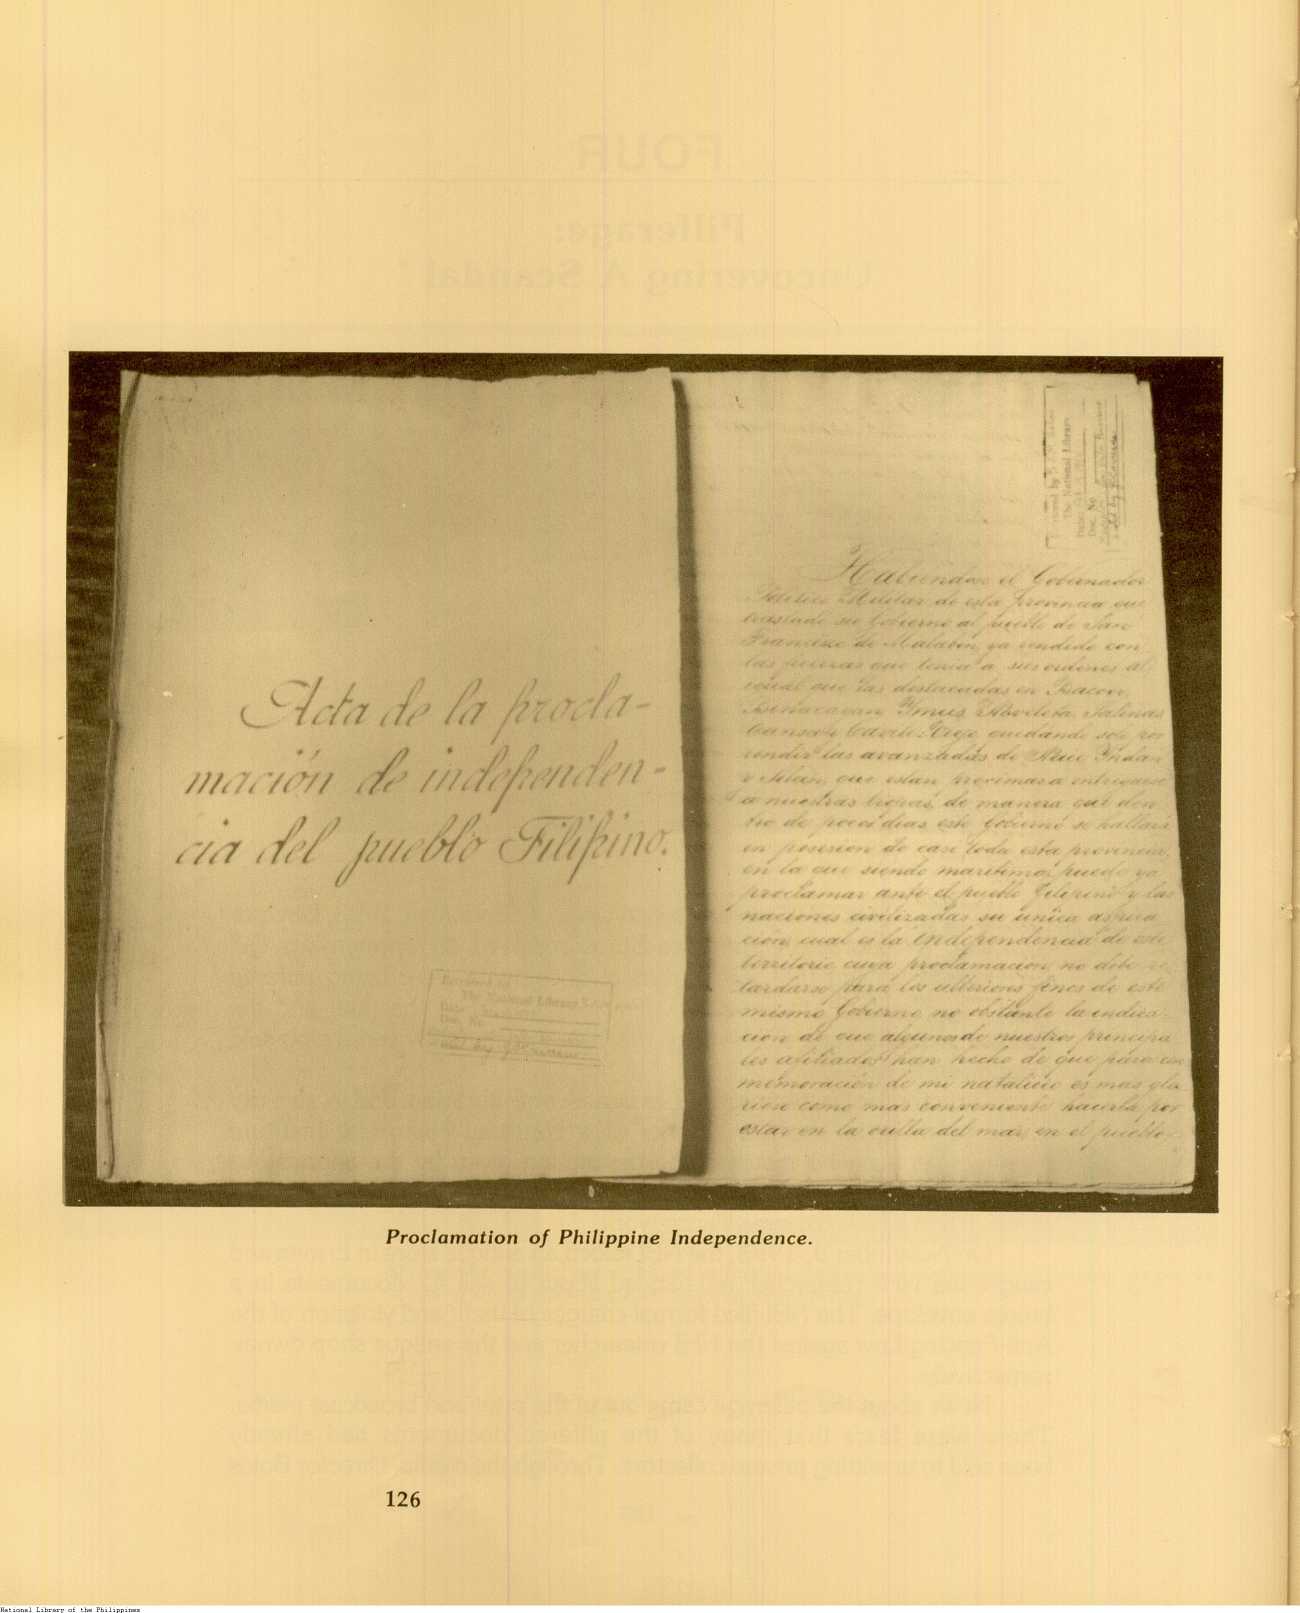 Acta de la procla-
mación de independen-
cia del pueblo Filipino.
Received by
The National Library
Date
Doc. No.
The National Library
Date
Doc. No.
Habiendose el Gobernador
Politico Militar de esta provincia que
trastado su Gobierno al pueblo de San
Francisco de Malabon, ya rendido con
las fuerzas que tenia a sus ordenes al
igual que las destacadas en Bacoor,
Binacayan, Ymus, Noveleta, Salinas
Cavite Viejo, quedando solo por
rendir las avanzadas de Naic Yndan
y Silan, que estan proximas a entregarse
a nuestras tropas, de manera que den
tro de pocos dias este Gobierno se hallará
en posesion de casi toda esta provincia,
en la que siendo maritima, puede ya
proclamar ante el pueblo Filipino y las
naciones civilizadas su unica aspira
cion, cual es la independencia de este
territorio cuya proclamacion no debe re
tardarse para los ulteriores fines de este
mismo Gobierno no obstante la indica-
cion de que algunos de nuestros principa
les afiliados han hecho de que para con
memoración de mi natalicio es mas glo
rioso como mas conveniente hacerla por
estar en la orilla del mar, en el pueblo
Proclamation of Philippine Independence.
126
National Library of the Philippines